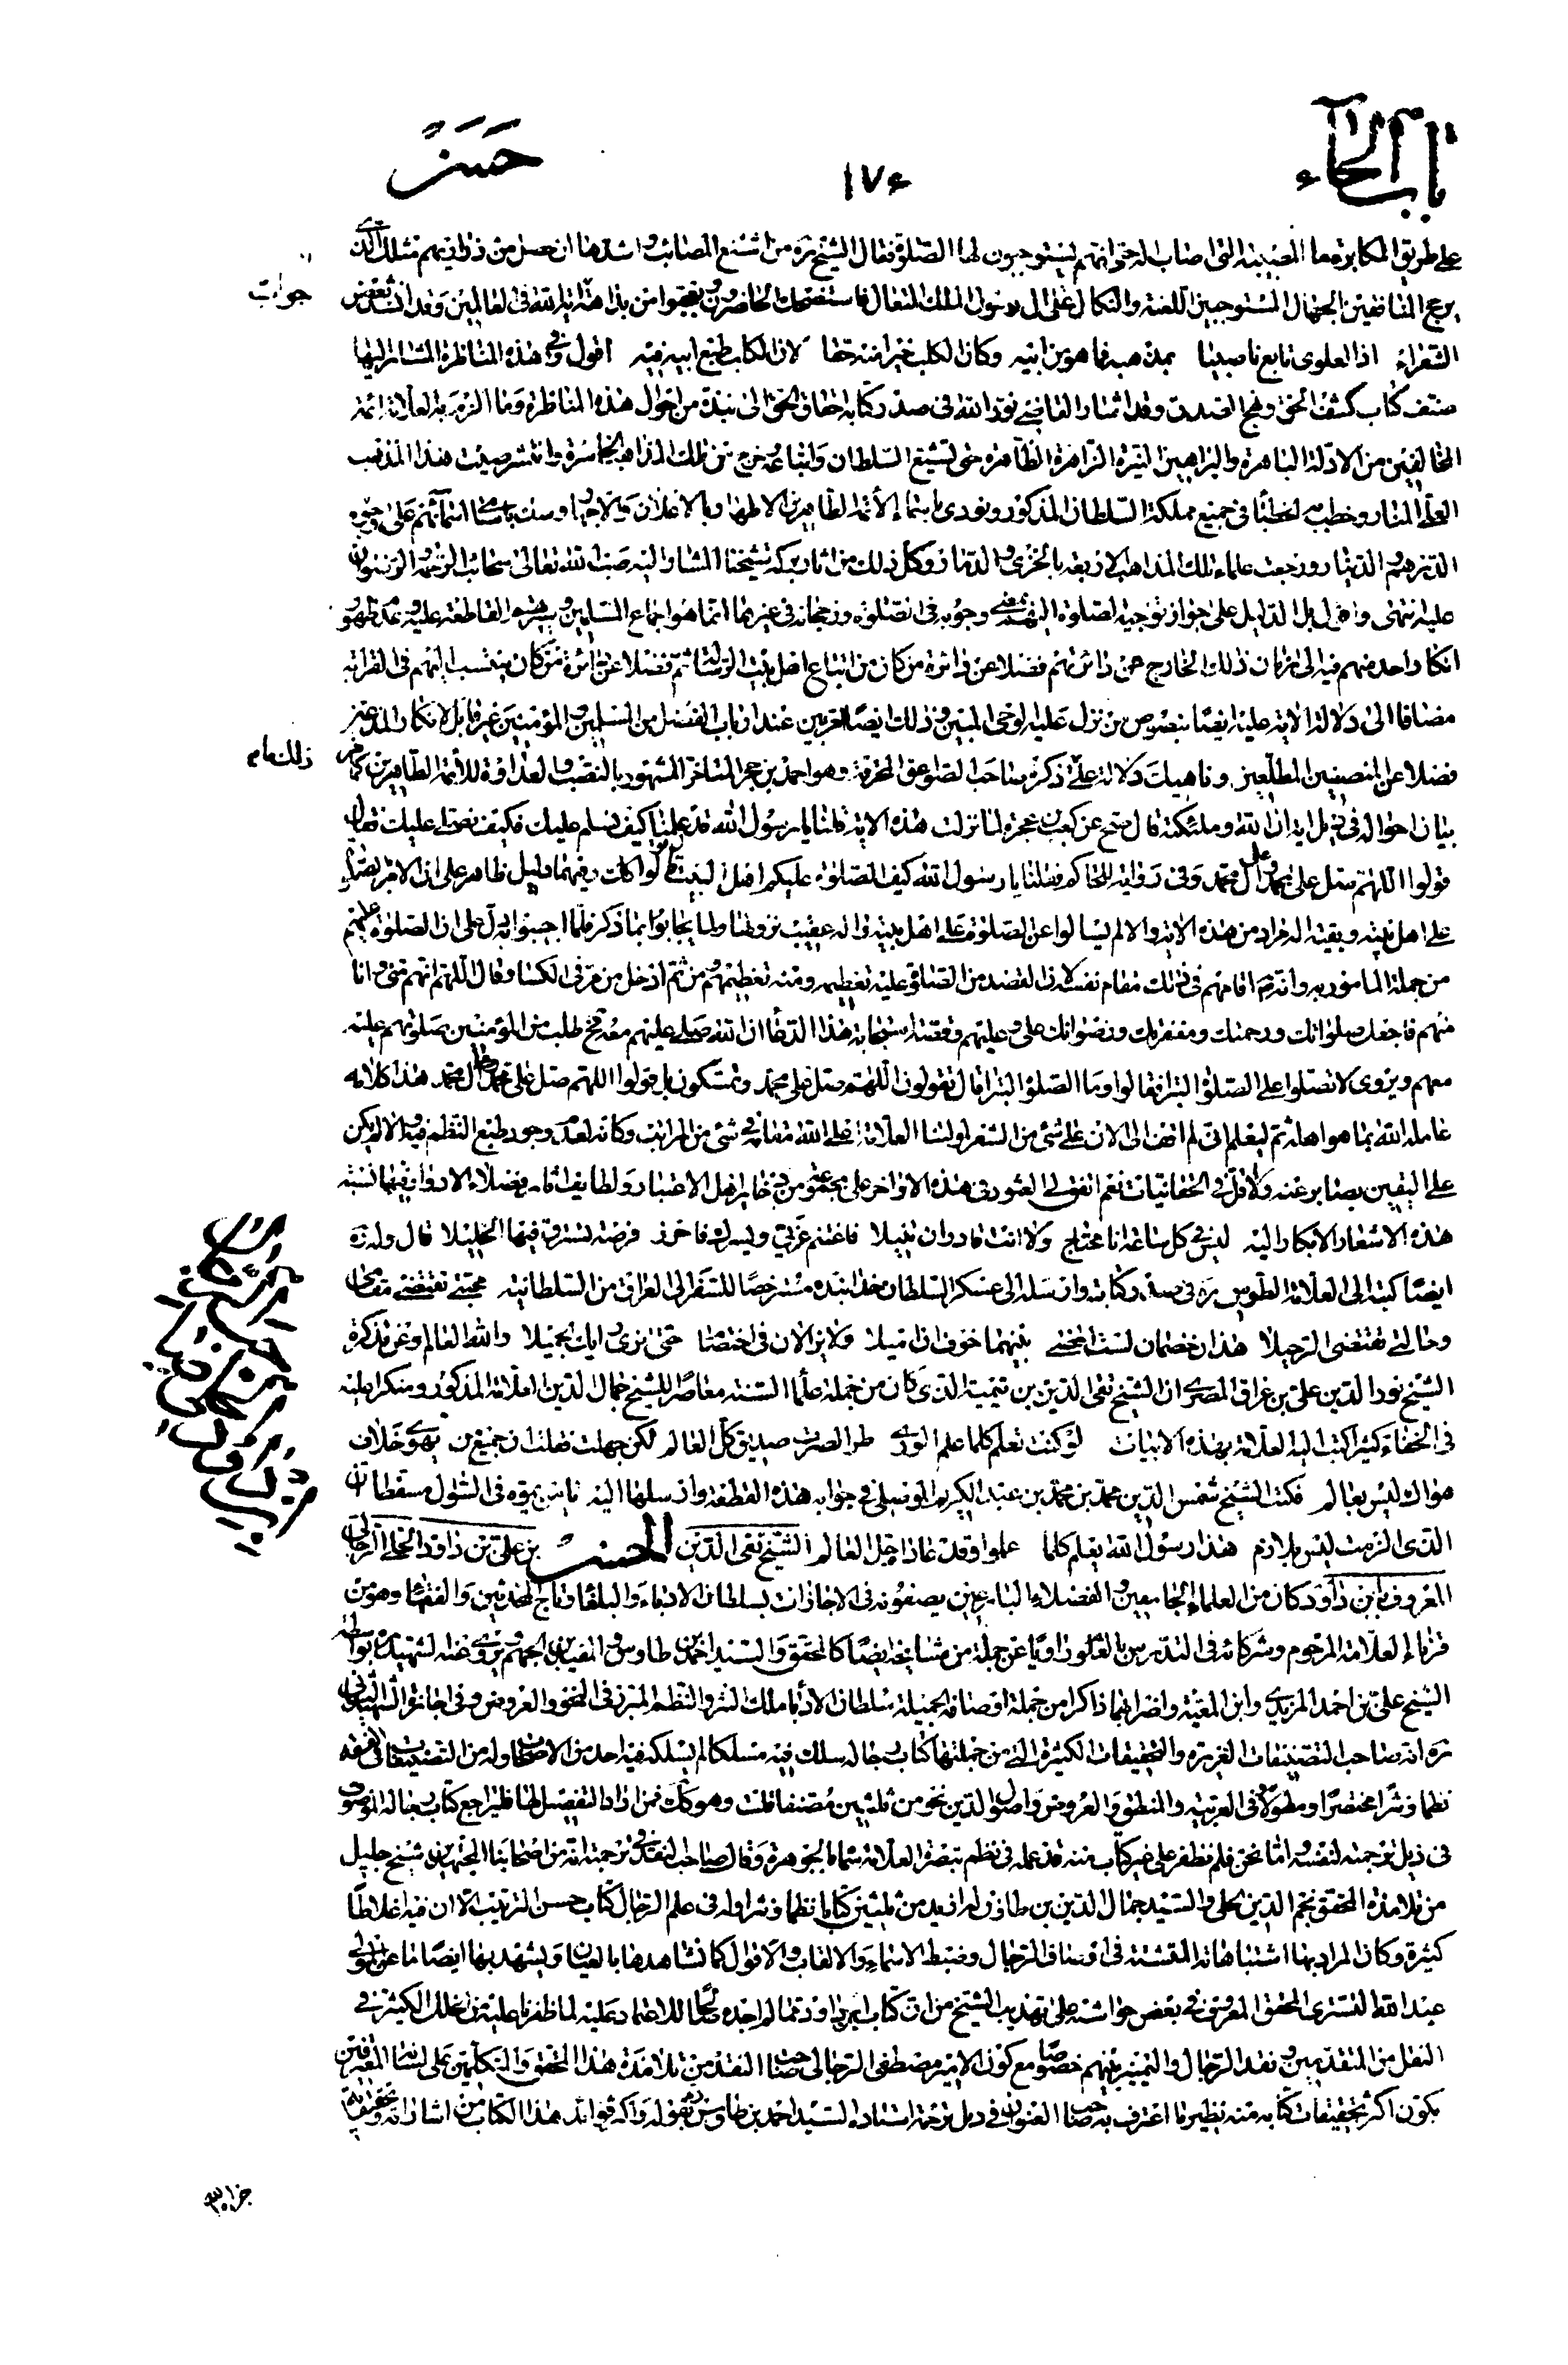 باب الحاء
١٧٤
حسن
على طريق المكابرة ما المصيبة التى اصاب له حتى انهم يستوجبون لها الصلوة فقال الشيخ ره من اشنع المصائب واشدها ان حصل من ذراريهم مثلك الذى
يرجح المنافقين الجهال المستوجبين اللعنة والنكال على ال رسول الملك المتعال فاستضحك الحاضرون وتعجبوا من بداهة اية الله فى العالمين وقد انشد بعض
جواب
الشعراء اذا العلوى تابع ناصبيا بمذهبه فما هو من ابيه وكان الكلب خيرا منه حقا لان الكلب طبع ابيه فيه اقول وفى هذه المناظرة المشار اليها
صنف كتاب كشف الحق ونهج الصدق وقد اشار القاضى نور الله فى صدر كتابه احقاق الحق الى نبذة من احوال هذه المناظرة وما الزم به العلامة ائمة
المخالفين من الادلة الباهرة والبراهين النيرة الزاهرة الظاهرة حتى تشيع السلطان واتباعه وخرج من تلك المذاهب الخاسرة وانتشر صيت هذا المذهب
العلى المنار وخطب الخطباء فى جميع مملكة السلطان المذكور ونودى باسماء الأئمة الطاهرين الاطهار بالاعلان والاجهار وسك باسامى اسمائهم على وجوه
الدرهم والدينار ورجعت علماء تلك المذاهب الاربعة بالخزى والدمار وكل ذلك من اثار بركة شيخنا المشار اليه صب الله تعالى سحائب الرحمة والرضوان
عليه انتهى واقول بل الدليل على جواز توجيه الصلوة اليهم بمعنى وجوبه فى الصلوة ورجحانه فى غيرها انما هو اجماع المسلمين وسيرتهم القاطعة عليه وعدم ظهور
انكار واحد منهم فيه الى زمان ذلك الخارج عن دائرتهم فضلا عن دائرة من كان من اتباع اهل بيت الرسالة ثم فضلا عن دائرة من كان ينتسب اليهم فى القرابة
مضافا الى دلالة الاية عليه ايضا بنصوص من نزل عليه الوحى المبين وذلك ايضا لقربين عند ارباب الفضل من المسلمين والمؤمنين غير قابل لانكار المدعين
فضلا عن المنصفين المطلعين وناهيك دلالة على ذكره صاحب الصواعق المحرقة وهو احمد بن حجر المتاخر المشهور بالنصب والعداوة للأئمة الطاهرين كما مر
ذلك عام
بيان احواله فى ذيل اية ان الله وملئكته قال صح عن كعب بن عجرة لما نزلت هذه الاية قلنا يا رسول الله قد علمنا كيف نسلم عليك فكيف نصلى عليك فقال
قولوا اللهم صل على محمد وعلى ال محمد وفى رواية للحاكم فقلنا يا رسول الله كيف الصلوة عليكم اهل البيت قال قولوا كان فيهما دليل ظاهر على ان الامر بالصلوة
على اهل بيته وبقية اله مراد من هذه الاية والا لم يسالوا عن الصلوة على اهل بيته واله عقيب نزولها ولما يجابوا بما ذكر فلما اجيبوا به دل على ان الصلوة عليهم
من جملة المامور به وانه ص اقامهم فى ذلك مقام نفسه لان القصد من الصلوة عليه تعظيمه ومنه تعظيمهم ومن ثم ادخل من مر فى الكسا وقال اللهم انهم منى وانا
منهم فاجعل صلواتك ورحمتك ومغفرتك ورضوانك على وعليهم وقضية استجابة هذا الدعا ان الله صلى عليهم معه فح طلب من المؤمنين صلوتهم عليه
معهم ويروى لا تصلوا على الصلوة البتراء فقالوا وما الصلوة البتراء قال تقولون اللهم صل على محمد وتمسكون بل قولوا اللهم صل على محمد وال محمد هذا كلامه
عامله الله بما هو اهله ثم ليعلم انى لم اقف الى الان على شىء من الشعر لمولينا العلامة اعلى الله مقامه فى شىء من المراتب وكانه لعدم وجود طبع النظم فيه والا لم يكن
على اليقين بصابر عنه ولا اقل فى الحقانيات نعم اتفق لى العثور فى هذه الاواخر على مجموعة من ذخاير اهل الاعتبار ولطايف اثار فضلاء الادوار فيها نسبة
هذه الاشعار الابكار اليه ليس فى كل ساعة انا محتاج ولا انت قادر ان تنيلا فاغتنم عزتى ويسرك فاحرز فرصة تسترق فيها الخليلا قال وله ره
ايضا كتبه الى العلامة الطوسى ره فى صدر كتابة وارسله الى عسكر السلطان خدابنده مسترخصا للسفر الى العراق من السلطانية محبتى تقتضى مقامى
وحالتى تقتضى الرحيلا هذان خصمان لست اقضى بينهما خوف ان اميلا ولا يزالان فى اختصام حتى نرى رايك الجميلا والله العالم وعن تذكرة
الشيخ نور الدين على بن عراق المصرى ان الشيخ تقى الدين بن تيمية الذى كان من جملة علماء السنة معاصرا للشيخ جمال الدين العلامة المذكور ومنكرا عليه
فى الخفاء كثيرا كتب اليه العلامة بهذه الابيات لو كنت تعلم كلما علم الورى طرا لصرت صديق كل العالم لكن جهلت فقلت ان جميع من يهوى خلاف
هواك ليس بعالم فكتب الشيخ شمس الدين محمد بن محمد بن عبد الكريم الموصلى فى جوابه هذه القطعة وارسلها اليه يا من يموه فى السؤال مسفسطا ان
الذى الزمت ليس بلازم هذا رسول الله يعلم كلما علموا وقد عاداه جل العالم الشيخ تقى الدين الحسن بن على بن داود الحلى الرجالى
المعروف بابن داود كان من العلماء الجامعين والفضلاء البارعين يصفونه فى الاجازات بسلطان الادباء والبلغاء وتاج المحدثين والفقهاء وهو من
قرناء العلامة المرحوم وشركائه فى التدريس بالعلوم راويا عن جملة من مشايخه ايضا كالمحقق والسيد احمد بن طاوس والمفيد بن الجهم ويروى عنه الشهيد ره بواسطة
الشيخ على بن احمد المزيدى وابن المعية واضرابهما ذاكرا من جملة اوصافه الجميلة سلطان الادباء ملك النثر والنظم المبرز فى النحو والعروض وفى اجازة الشهيد الثانى
ره انه صاحب التصنيفات الغزيرة والتحقيقات الكثيرة التى من جملتها كتاب رجاله سلك فيه مسلكا لم يسلكه فيه احد من الاصحاب وله من التصنيفات فى الفقه
نظما ونثرا مختصرا ومطولا وفى العربية والمنطق والعروض واصول الدين نحو من ثلثين مصنفا قلت وهو كك فمن اراد التفصيل لها فليراجع كتاب رجاله الموصوف
فى ذيل ترجمته لنفسه واما نحن فلم نظفر على غير كتاب منه قد عمله فى نظم تبصرة العلامة سماه بالجوهرة وقال صاحب النقد فى ترجمته انه من اصحابنا المجتهدين شيخ جليل
من تلامذة المحقق نجم الدين الحلى والسيد جمال الدين بن طاوس له ازيد من ثلثين كتابا نظما ونثرا وله فى علم الرجال كتاب حسن الترتيب الا ان فيه اغلاطا
كثيرة وكان المراد بها اشتباهاته المقتشة فى اوصاف الرجال وضبط الاسماء والالقاب والاقوال كما نشاهدها بالعيان ويشهد بها ايضا ما عن المولى
عبد الله التسترى المحقق المعروف فى بعض حواشيه على تهذيب الشيخ من ان كتاب ابن داود مما لم اجده صالحا للاعتماد عليه لما ظفرنا عليه من الخلل الكثير فى
النقل من المتقدمين وفى نقد الرجال والتمييز بينهم خصوصا مع كون الامير مصطفى الرجالى صاحب النقد من تلامذة هذا المحقق والمتكلمين على لسانه المعترفين
بكون اكثر تحقيقات كتابه منه نظير ما اعترف به صاحب العنوان فى ذيل ترجمة استاده السيد احمد بن طاوس ره بقوله واكثر فوائد هذا الكتاب من اشاراته وتحقيقاته